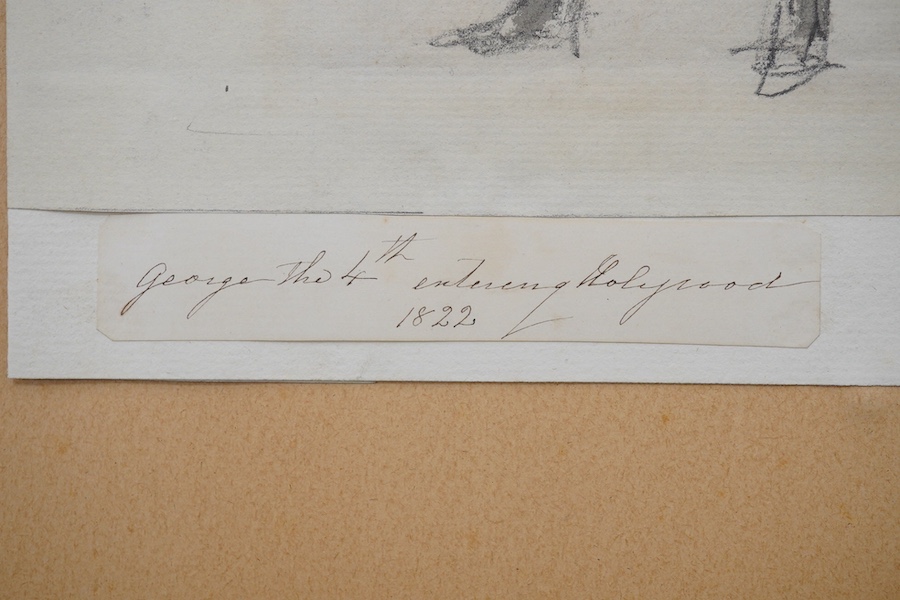 George the 4th entering Holyrood
1822